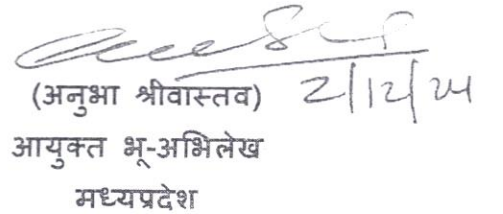 (अनुभा श्रीवास्तव) 2/12/24
आयुक्त भू-अभिलेख
मध्यप्रदेश